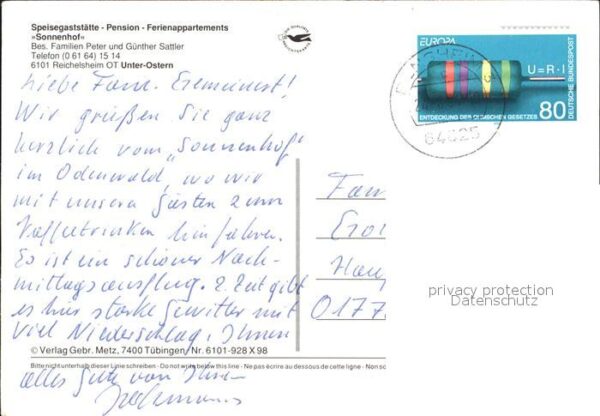 Speisegaststätte - Pension - Ferienappartements
»Sonnenhof«
Bes. Familien Peter und Günther Sattler
Telefon (0 61 64) 15 14
6101 Reichelsheim OT Unter-Ostern
EUROPA
U=R·I
ENTDECKUNG DES OHMSCHEN GESETZES
80
DEUTSCHE BUNDESPOST
64625
Liebe Fam.
Wir grüßen Sie ganz
herzlich vom „Sonnenhof"
im Odenwald, wo wir
mit unsern Gästen zum
Kaffeetrinken hinfahren.
Es ist ein schöner Nach-
mittagsausflug. Z. Zeit gibt
es hier starke Gewitter mit
viel Niederschlag. Ihnen
alles Gute von Ihren
Fam
Hau
0177
privacy protection
Datenschutz
© Verlag Gebr. Metz, 7400 Tübingen/Nr. 6101-928 X 98
Bitte nicht unterhalb dieser Linie schreiben - Do not write below this line - Ne pas écrire au dessous de cette ligne - Non sc